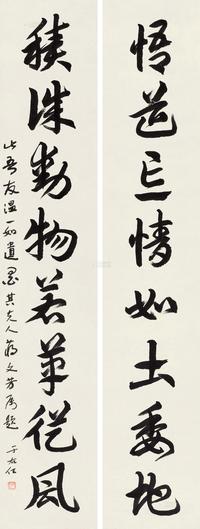 悟道亡情如土委地
積誠動物若草從風
此吾友溫一如遺墨其夫人蔣文芳屬題
于右任